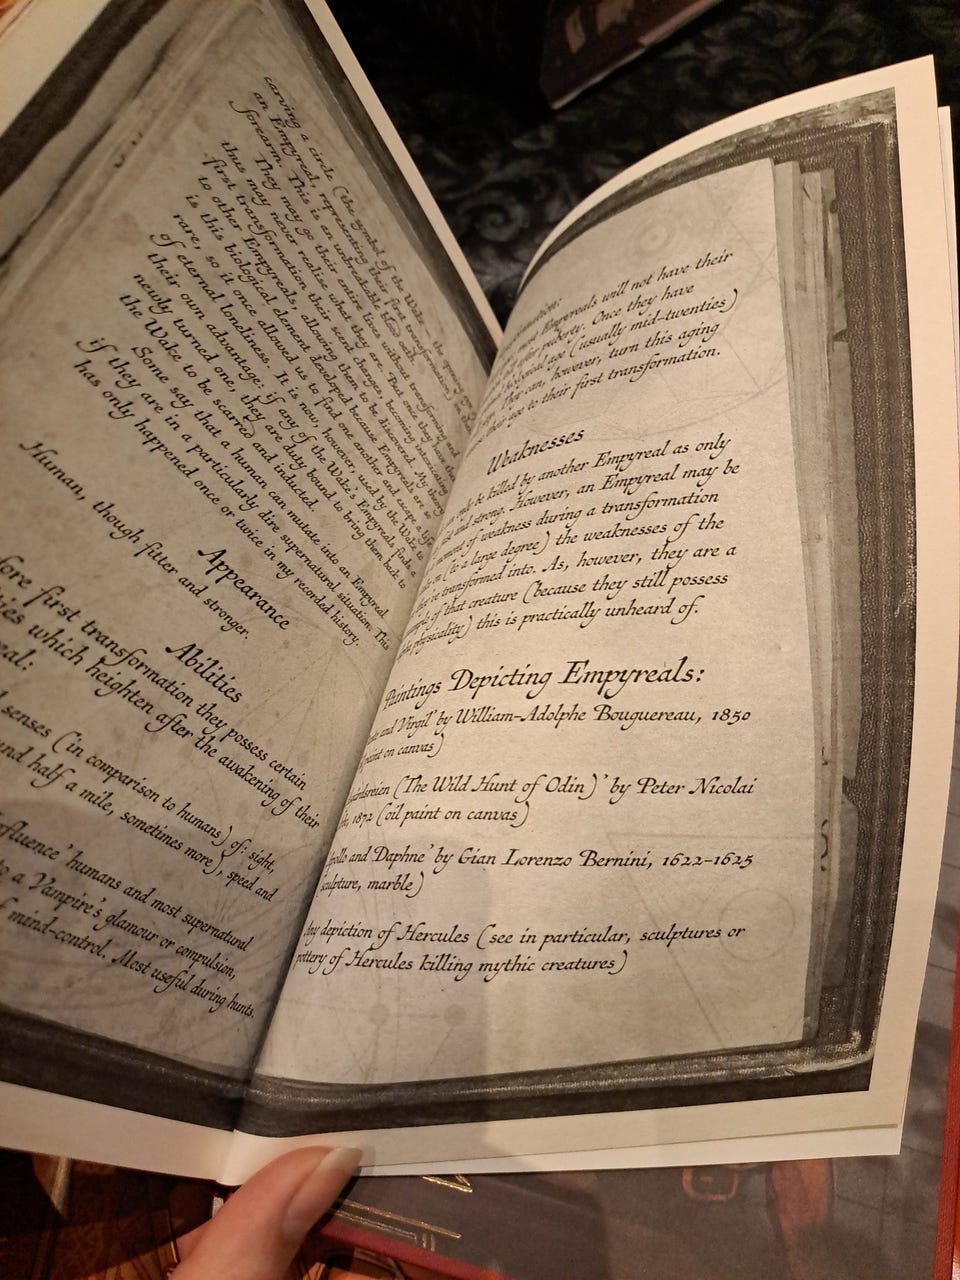 carving a circle (the symbol of the Wake
an Empyreal, representing their first transformation) in the
forearm. This is an unbreakable blood oath.
They may go their entire lives without transforming and
thus may never realise what they are. But once they have the
first transformation their scent changes, becoming intoxicating
to other Empyreals, allowing them to be discovered. My theory
is this biological element developed because Empyreals are so
rare, so it once allowed us to find one another and escape a life
of eternal loneliness. It is now, however, used by the Wake to
their own advantage: if any of the Wake's Empyreals finds a
newly turned one, they are duty bound to bring them back to
the Wake to be scarred and inducted.
Some say that a human can mutate into an Empyreal
if they are in a particularly dire supernatural situation. This
has only happened once or twice in my recorded history.
Appearance
Human, though fitter and stronger.
Abilities
first transformation they possess certain
which heighten after the awakening of their
senses (in comparison to humans) of: sight,
half a mile, sometimes more), speed and
humans and most supernatural
to a Vampire's glamour or compulsion,
mind-control. Most useful during hunts.
most Empyreals will not have their
after puberty. Once they have
biological age (usually mid-twenties)
They can, however, turn this aging
their age to their first transformation.
Weaknesses
only be killed by another Empyreal as only
and strong. However, an Empyreal may be
moment of weakness during a transformation
on (to a large degree) the weaknesses of the
transformed into. As, however, they are a
of that creature (because they still possess
physicality) this is practically unheard of.
Paintings Depicting Empyreals:
and Virgil' by William-Adolphe Bouguereau, 1850
paint on canvas)
(The Wild Hunt of Odin)' by Peter Nicolai
1872 (oil paint on canvas)
Apollo and Daphne' by Gian Lorenzo Bernini, 1622-1625
sculpture, marble)
Any depiction of Hercules (see in particular, sculptures or
pottery of Hercules killing mythic creatures)